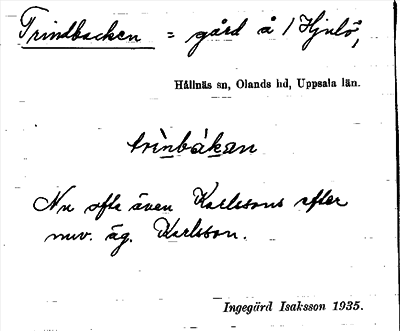 Trindbacken = gård å / Hjulö,
Hållnäs sn, Olands hd, Uppsala län.
trìnbákan
Nu ofta även Karlssons efter
nuv. äg. Karlsson.
Ingegärd Isaksson 1935.